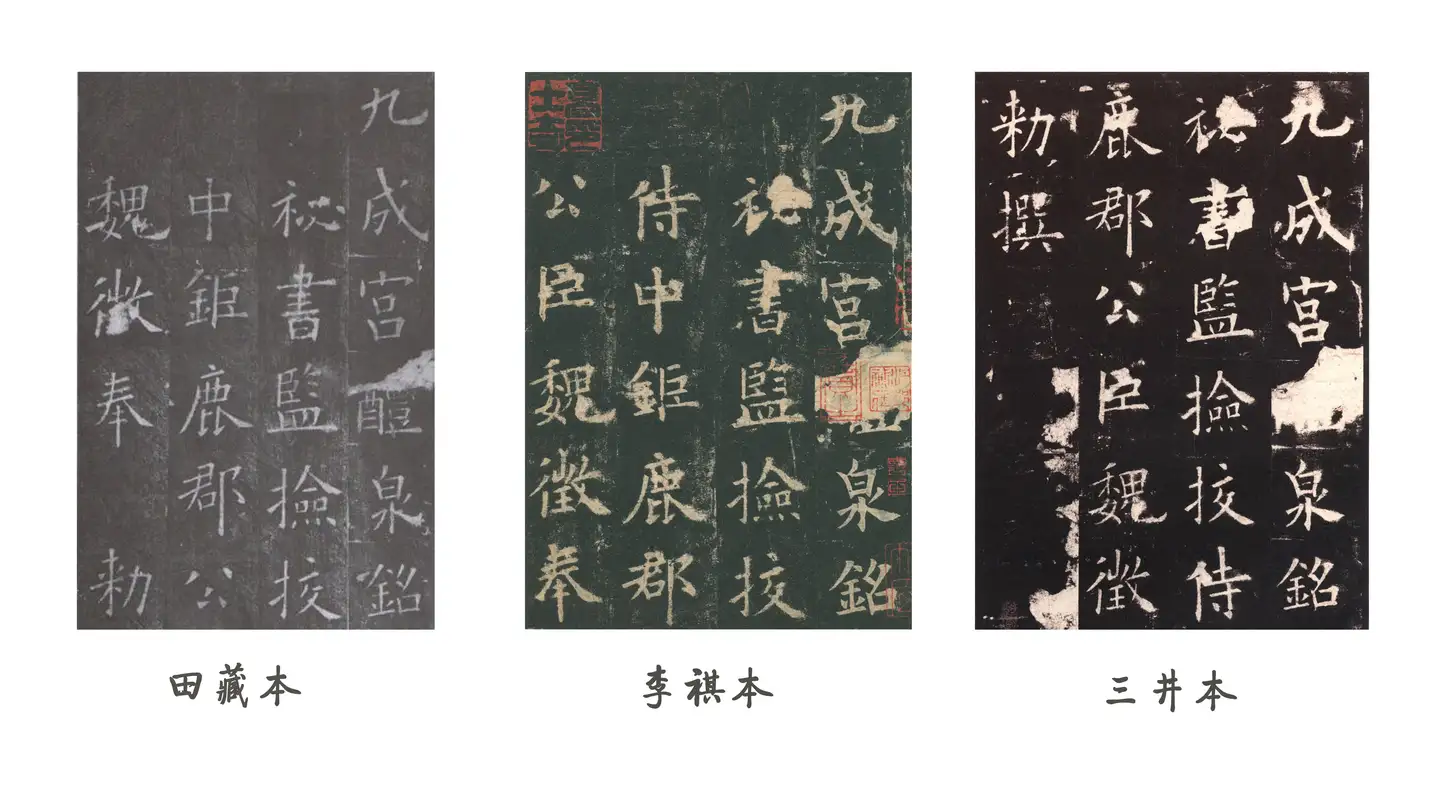 九成宮醴泉銘
祕書監撿挍
中鉅鹿郡公
魏徵奉勅
田藏本
九成宮泉銘
祕書監撿挍
侍中鉅鹿郡
公臣魏徵奉
李祺本
九成宮泉銘
祕書監撿挍侍
鹿郡公臣魏徵
勅撰
三井本